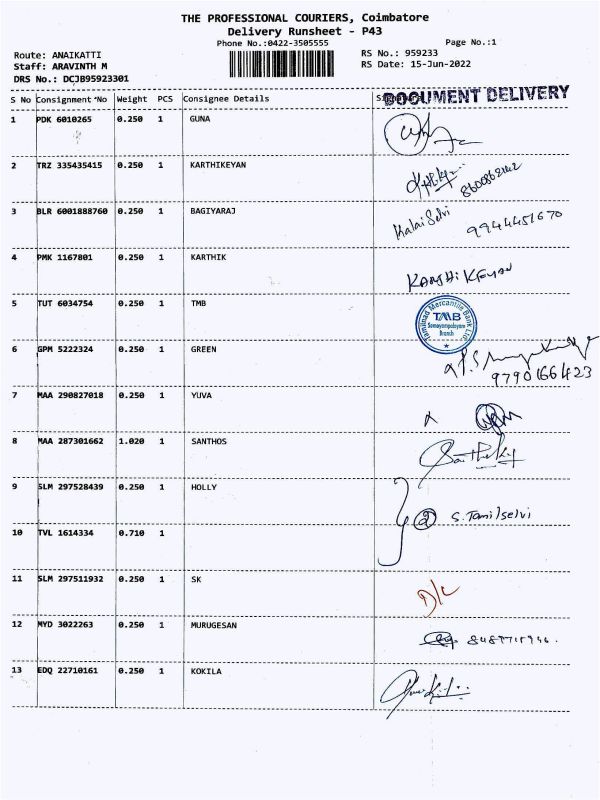 THE PROFESSIONAL COURIERS, Coimbatore
Delivery Runsheet - P43
Phone No.:0422-3505555 Page No.:1
Route: ANAIKATTI RS No.: 959233
Staff: ARAVINTH M RS Date: 15-Jun-2022
DRS No.: DCJB95923301
S No Consignment No Weight PCS Consignee Details
DOCUMENT DELIVERY
1 PDK 6010265 0.250 1 GUNA
2 TRZ 335435415 0.250 1 KARTHIKEYAN
3 BLR 6001888760 0.250 1 BAGIYARAJ Kalai Selvi 9944451670
4 PMK 1167801 0.250 1 KARTHIK
5 TUT 6034754 0.250 1 TMB
Tamilnad Mercantile Bank Ltd.
TMB
Somayampalayam
Branch
6 GPM 5222324 0.250 1 GREEN
9790166423
7 MAA 290827018 0.250 1 YUVA
8 MAA 287301662 1.020 1 SANTHOS
9 SLM 297528439 0.250 1 HOLLY
2 S. Tamilselvi
10 TVL 1614334 0.710 1
11 SLM 297511932 0.250 1 SK D/L
12 MYD 3022263 0.250 1 MURUGESAN
13 EDQ 22710161 0.250 1 KOKILA